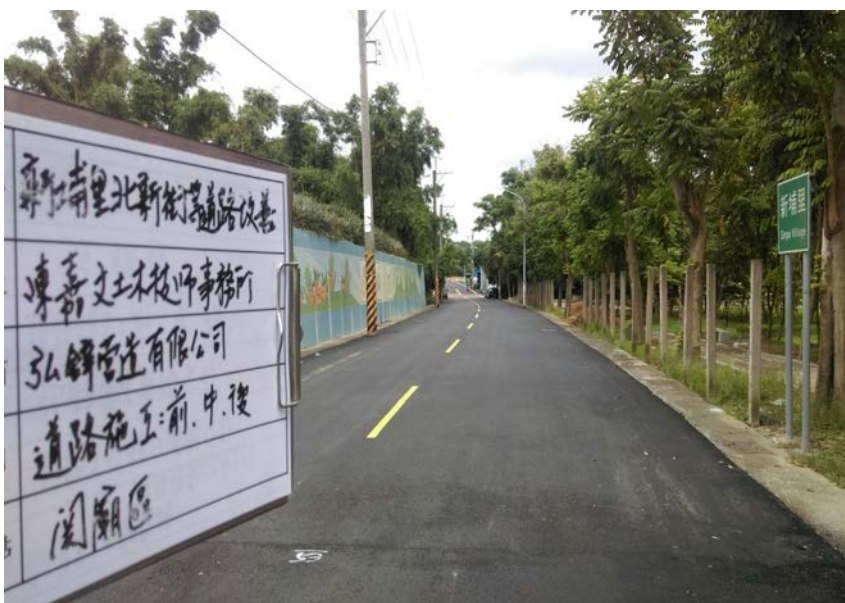 新埔里北新街等道路改善
陳嘉文土木技師事務所
弘鋒營造有限公司
道路施工:前.中.後
関廟區
新埔里
Sinpu Village